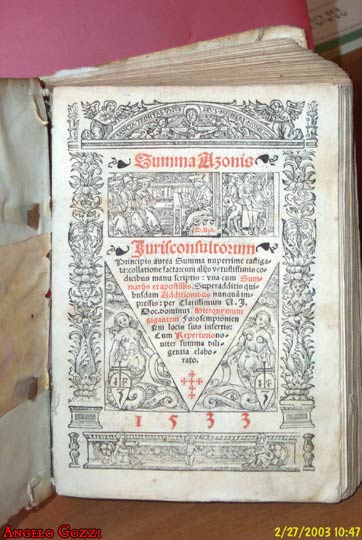 Summa Azonis
Jurisconsultorum
Principis aurea Summa nuperrime castiga
ta: collatione facta cum alijs vetustissimis co
dicibus manu scriptis: vna cum Sum
marijs et apostillis. Superadditis qui
busdam Additionibus nunquã im
pressis: per Clarissimum U. J.
Doc. dominuz Hieronymum
gigantem Forosempronien
sem locis suis insertis:
Cum Repertorio no
uiter summa dili
gentia elabo
rato.
1533
Angelo Gozzi
2/27/2003 10:47